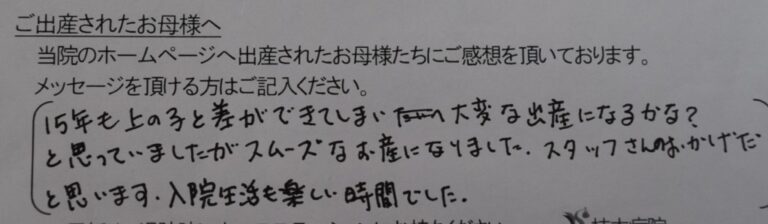 ご出産されたお母様へ
当院のホームページへ出産されたお母様たちにご感想を頂いております。
メッセージを頂ける方はご記入ください。
15年も上の子と差ができてしまい 大変な出産になるかな？
と思っていましたがスムーズなお産になりました．スタッフさんのおかげだ
と思います．入院生活も楽しい時間でした．